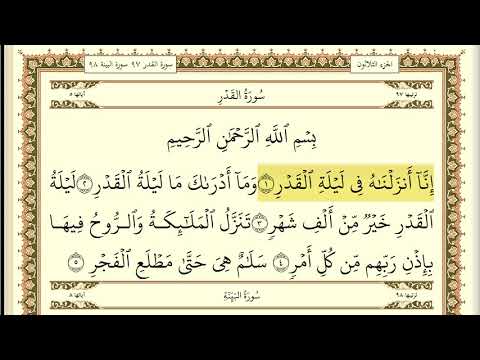 الجزء الثلاثون
سورة القدر ٩٧ سورة البينة ٩٨
ترتيبها ٩٧
سُورَةُ القَدْرِ
آياتها ٥
بِسْمِ اللَّهِ الرَّحْمَٰنِ الرَّحِيمِ
إِنَّآ أَنزَلْنَٰهُ فِى لَيْلَةِ الْقَدْرِ ١ وَمَآ أَدْرَىٰكَ مَا لَيْلَةُ الْقَدْرِ ٢ لَيْلَةُ
الْقَدْرِ خَيْرٌ مِّنْ أَلْفِ شَهْرٍ ٣ تَنَزَّلُ الْمَلَٰٓئِكَةُ وَالرُّوحُ فِيهَا
بِإِذْنِ رَبِّهِم مِّن كُلِّ أَمْرٍ ٤ سَلَٰمٌ هِىَ حَتَّىٰ مَطْلَعِ الْفَجْرِ ٥
ترتيبها ٩٨
سُورَةُ البَيِّنَةِ
آياتها ٨